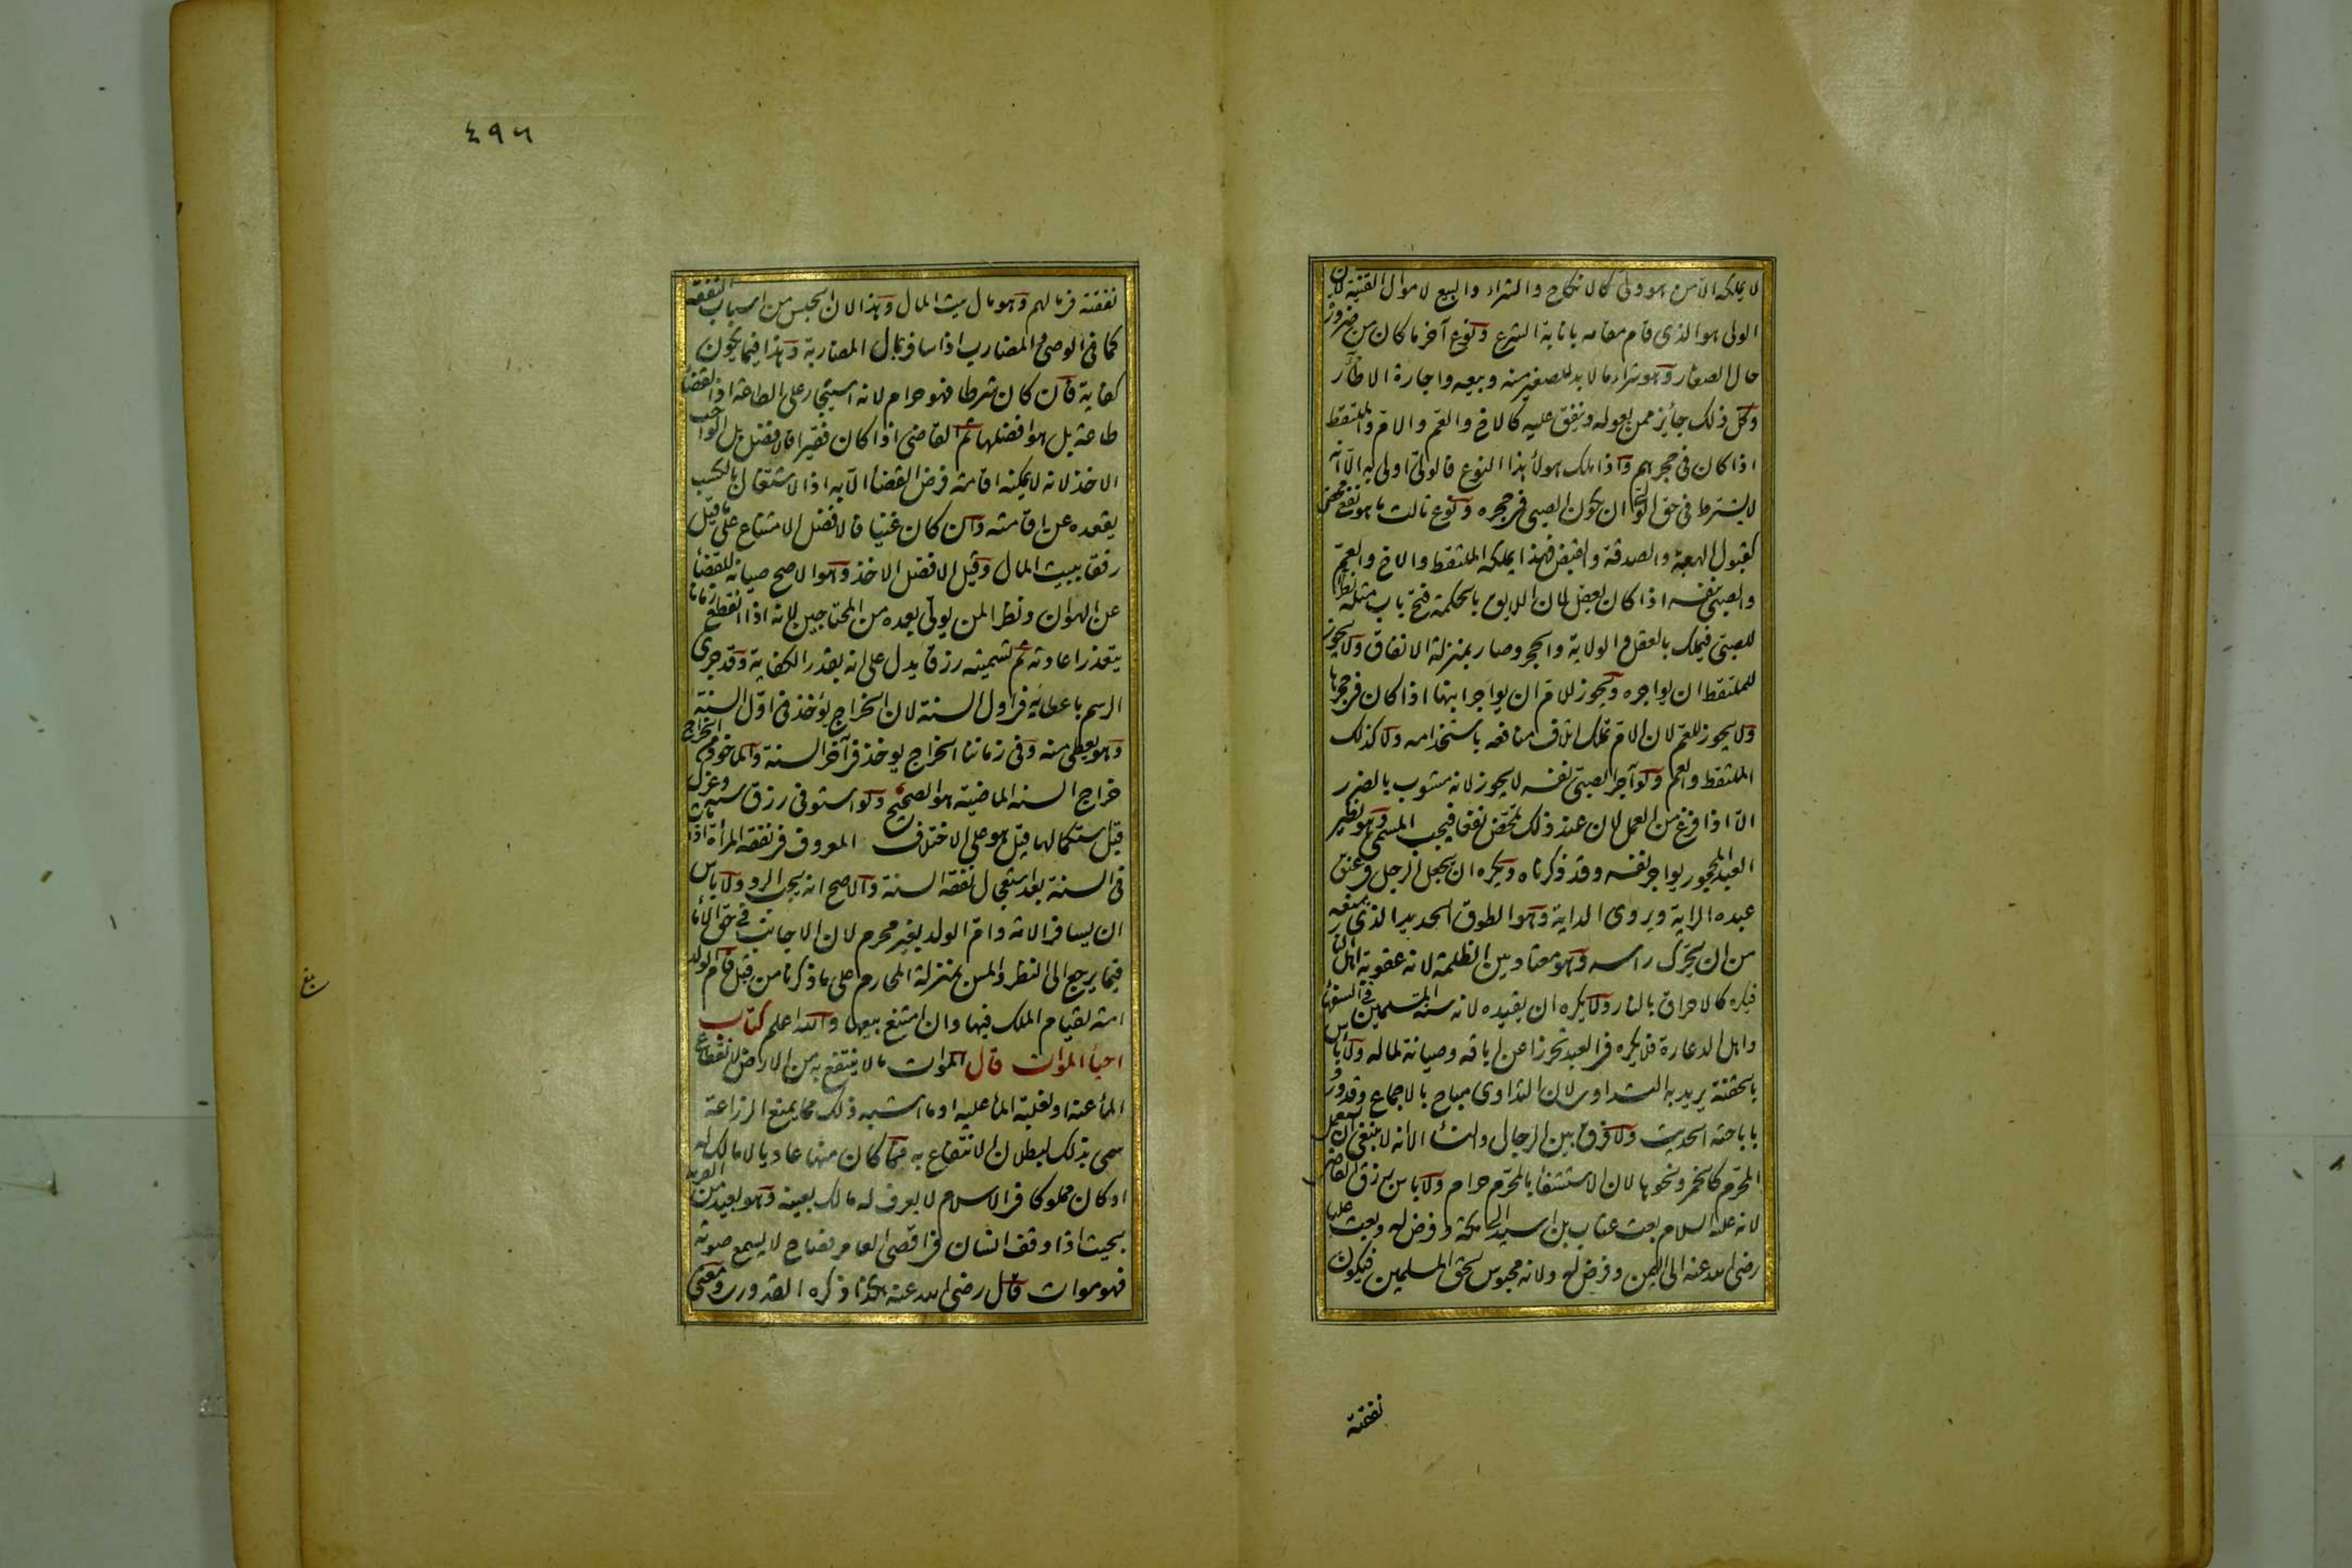 لا يملكه الا من هو ولى كالانكاح والشراء والبيع لاموال القنية لان
الولى هو الذى قام مقامه بانابة الشرع ونوع آخر ما كان من ضرورة
حال الصغار وهو شراء ما لابد للصغير منه وبيعه واجارة الاظآر
وكل ذلك جائز ممن يعوله وينفق عليه كالاخ والعم والام والملتقط
اذا كان فى حجرهم واذا ملك هولاء هذا النوع فالولى اولى به الا انه
لا يشترط فى حق الولى ان يكون الصبى فى حجره ونوع ثالث ما هو نفع محض
كقبول الهبة والصدقة والقبض فهذا يملكه الملتقط والاخ والعم
والصبى نفسه اذا كان يعقل لان اللايق بالحكمة فتح باب مثله نظرا
للصبى فيملك بالعقل والولاية والحجر وصار بمنزلة الانفاق ولا يجوز
للملتقط ان يواجره ويجوز للام ان يواجر ابنها اذا كان فى حجرها
ولا يجوز للعم لان الام تملك اتلاف منافعه باستخدامه ولا كذلك
الملتقط والعم ولو آجر الصبى نفسه لا يجوز لانه مشوب بالضرر
الا اذا فرغ من العمل لان عند ذلك تمحض نفعا فيجب المسمى وهو نظير
العبد المحجور يواجر نفسه وقد ذكرناه ويكره ان يجعل الرجل فى عنق
عبده الراية ويروى الداية وهو الطوق الحديد الذى يمنعه
من ان يتحرك راسه وهو معتاد بين الظلمة لانه عقوبة اهل النار
فيكره كالاحراق بالنار ولا يكره ان يقيده لانه سنة المسلمين فى السفهاء
واهل الدعارة فلا يكره فى العبد تحرزا عن اباقه وصيانة لماله ولا باس
بالحقنة يريد به التداوى لان التداوى مباح بالاجماع وقد ورد
باباحته الحديث ولا فرق بين الرجال والنساء الا انه لا ينبغى ان يستعمل
المحرم كالخمر ونحوها لان الاستشفاء بالمحرم حرام ولا باس برزق القاضى
لانه عليه السلام بعث عتاب بن اسيد الى مكة وفرض له وبعث عليا
رضى الله عنه الى اليمن وفرض له ولانه محبوس لحق المسلمين فيكون
نفقته
٤٩٦
نفقته فى مالهم وهو مال بيت المال وهذا لان الحبس من اسباب النفقة
كما فى الوصى والمضارب اذا سافر بمال المضاربة وهذا فيما يكون
كفاية فان كان شرطا فهو حرام لانه استيجار على الطاعة اذ القضاء
طاعة بل هو افضلها ثم القاضى اذا كان فقيرا فالافضل بل الواجب
الاخذ لانه لا يمكنه اقامة فرض القضاء الا به اذ الاشتغال بالكسب
يقعده عن اقامته وان كان غنيا فالافضل الامتناع على ما قيل
رفقا ببيت المال وقيل الافضل الاخذ وهو الاصح صيانة للقضاء
عن الهوان ونظرا لمن يولى بعده من المحتاجين لانه اذا انقطع زمانا
يتعذر اعادته ثم تسميته رزقا يدل على انه بقدر الكفاية وقد جرى
الرسم باعطائه فى اول السنة لان الخراج يؤخذ فى اول السنة
وهو يعطى منه وفى زماننا الخراج يوخذ فى آخر السنة والماخوذ من الخراج
خراج السنة الماضية هو الصحيح ولو استوفى رزق سنة وعزل
قبل استكمالها قيل هو على الاختلاف المعروف فى نفقة المرأة اذا ماتت
فى السنة بعد استعجال نفقة السنة والاصح انه يجب الرد ولا باس
ان يسافر الامة وام الولد بغير محرم لان الاجانب فى حق الاماء
فيما يرجع الى النظر والمس بمنزلة المحارم على ما ذكرنا من قبل وام الولد
امة لقيام الملك فيها وان امتنع بيعها والله اعلم كتاب
احياء الموات قال الموات ما لا ينتفع به من الارض لانقطاع
الماء عنه او لغلبة الماء عليه او ما اشبه ذلك مما يمنع الزراعة
سمى بذلك لبطلان الانتفاع به فما كان منها عاديا لا مالك له
او كان مملوكا فى الاسلام لا يعرف له مالك بعينه وهو بعيد من القرية
بحيث اذا وقف انسان فى اقصى العامر فصاح لا يسمع صوته
فهو موات قال رضى الله عنه هكذا ذكره القدورى ومعنى